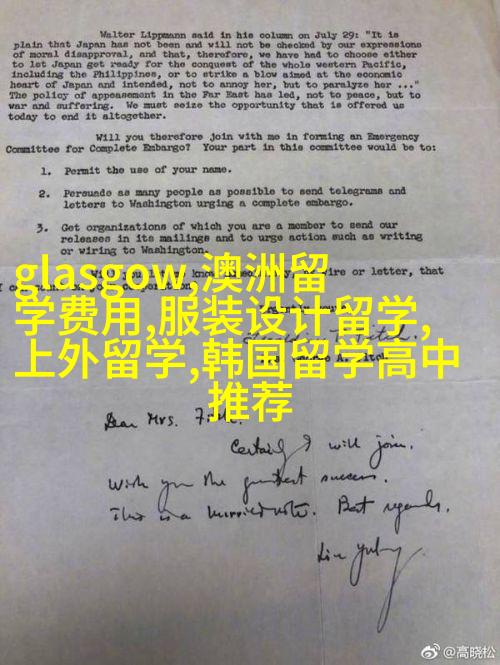 Walter Lippmann said in his column on July 29: "It is
plain that Japan has not been and will not be checked by our expressions
of moral disapproval, and that, therefore, we have had to choose either
to let Japan get ready for the conquest of the whole western Pacific,
including the Philippines, or to strike a blow aimed at the economic
heart of Japan and intended, not to annoy her, but to paralyze her ..."
The policy of appeasement in the Far East has led, not to peace, but to
war and suffering. We must seize the opportunity that is offered us
today to end it altogether.
Will you therefore join with me in forming an Emergency
Committee for Complete Embargo? Your part in this committee would be to:
1. Permit the use of your name.
2. Persuade as many people as possible to send telegrams and
letters to Washington urging a complete embargo.
3. Get organizations of which you are a member to send our
releases in its mailings and to urge action such as writing
or wiring to Washington.
wire or letter, that
glasgow,澳洲留
学费用,服装设计留学,
上外留学,韩国留学高中
推荐
Dear Mrs.
Certainly I will join.
Wish you the greatest success.
This is a hurried note. Best regards.
Lin Yutang
@高晓松